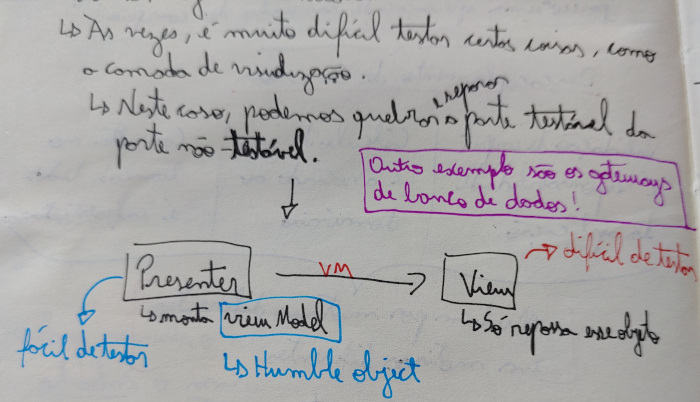 ↳ Às vezes, é muito difícil testar certas coisas, como
a camada de visualização.
↳ Neste caso, podemos quebrar e separar a parte testável da
parte não testável.
Outro exemplo são os gateways
de banco de dados!
Presenter
VM
View
→ difícil de testar
↳ monta view Model
↳ Só repassa esse objeto
fácil de testar
↳ Humble object